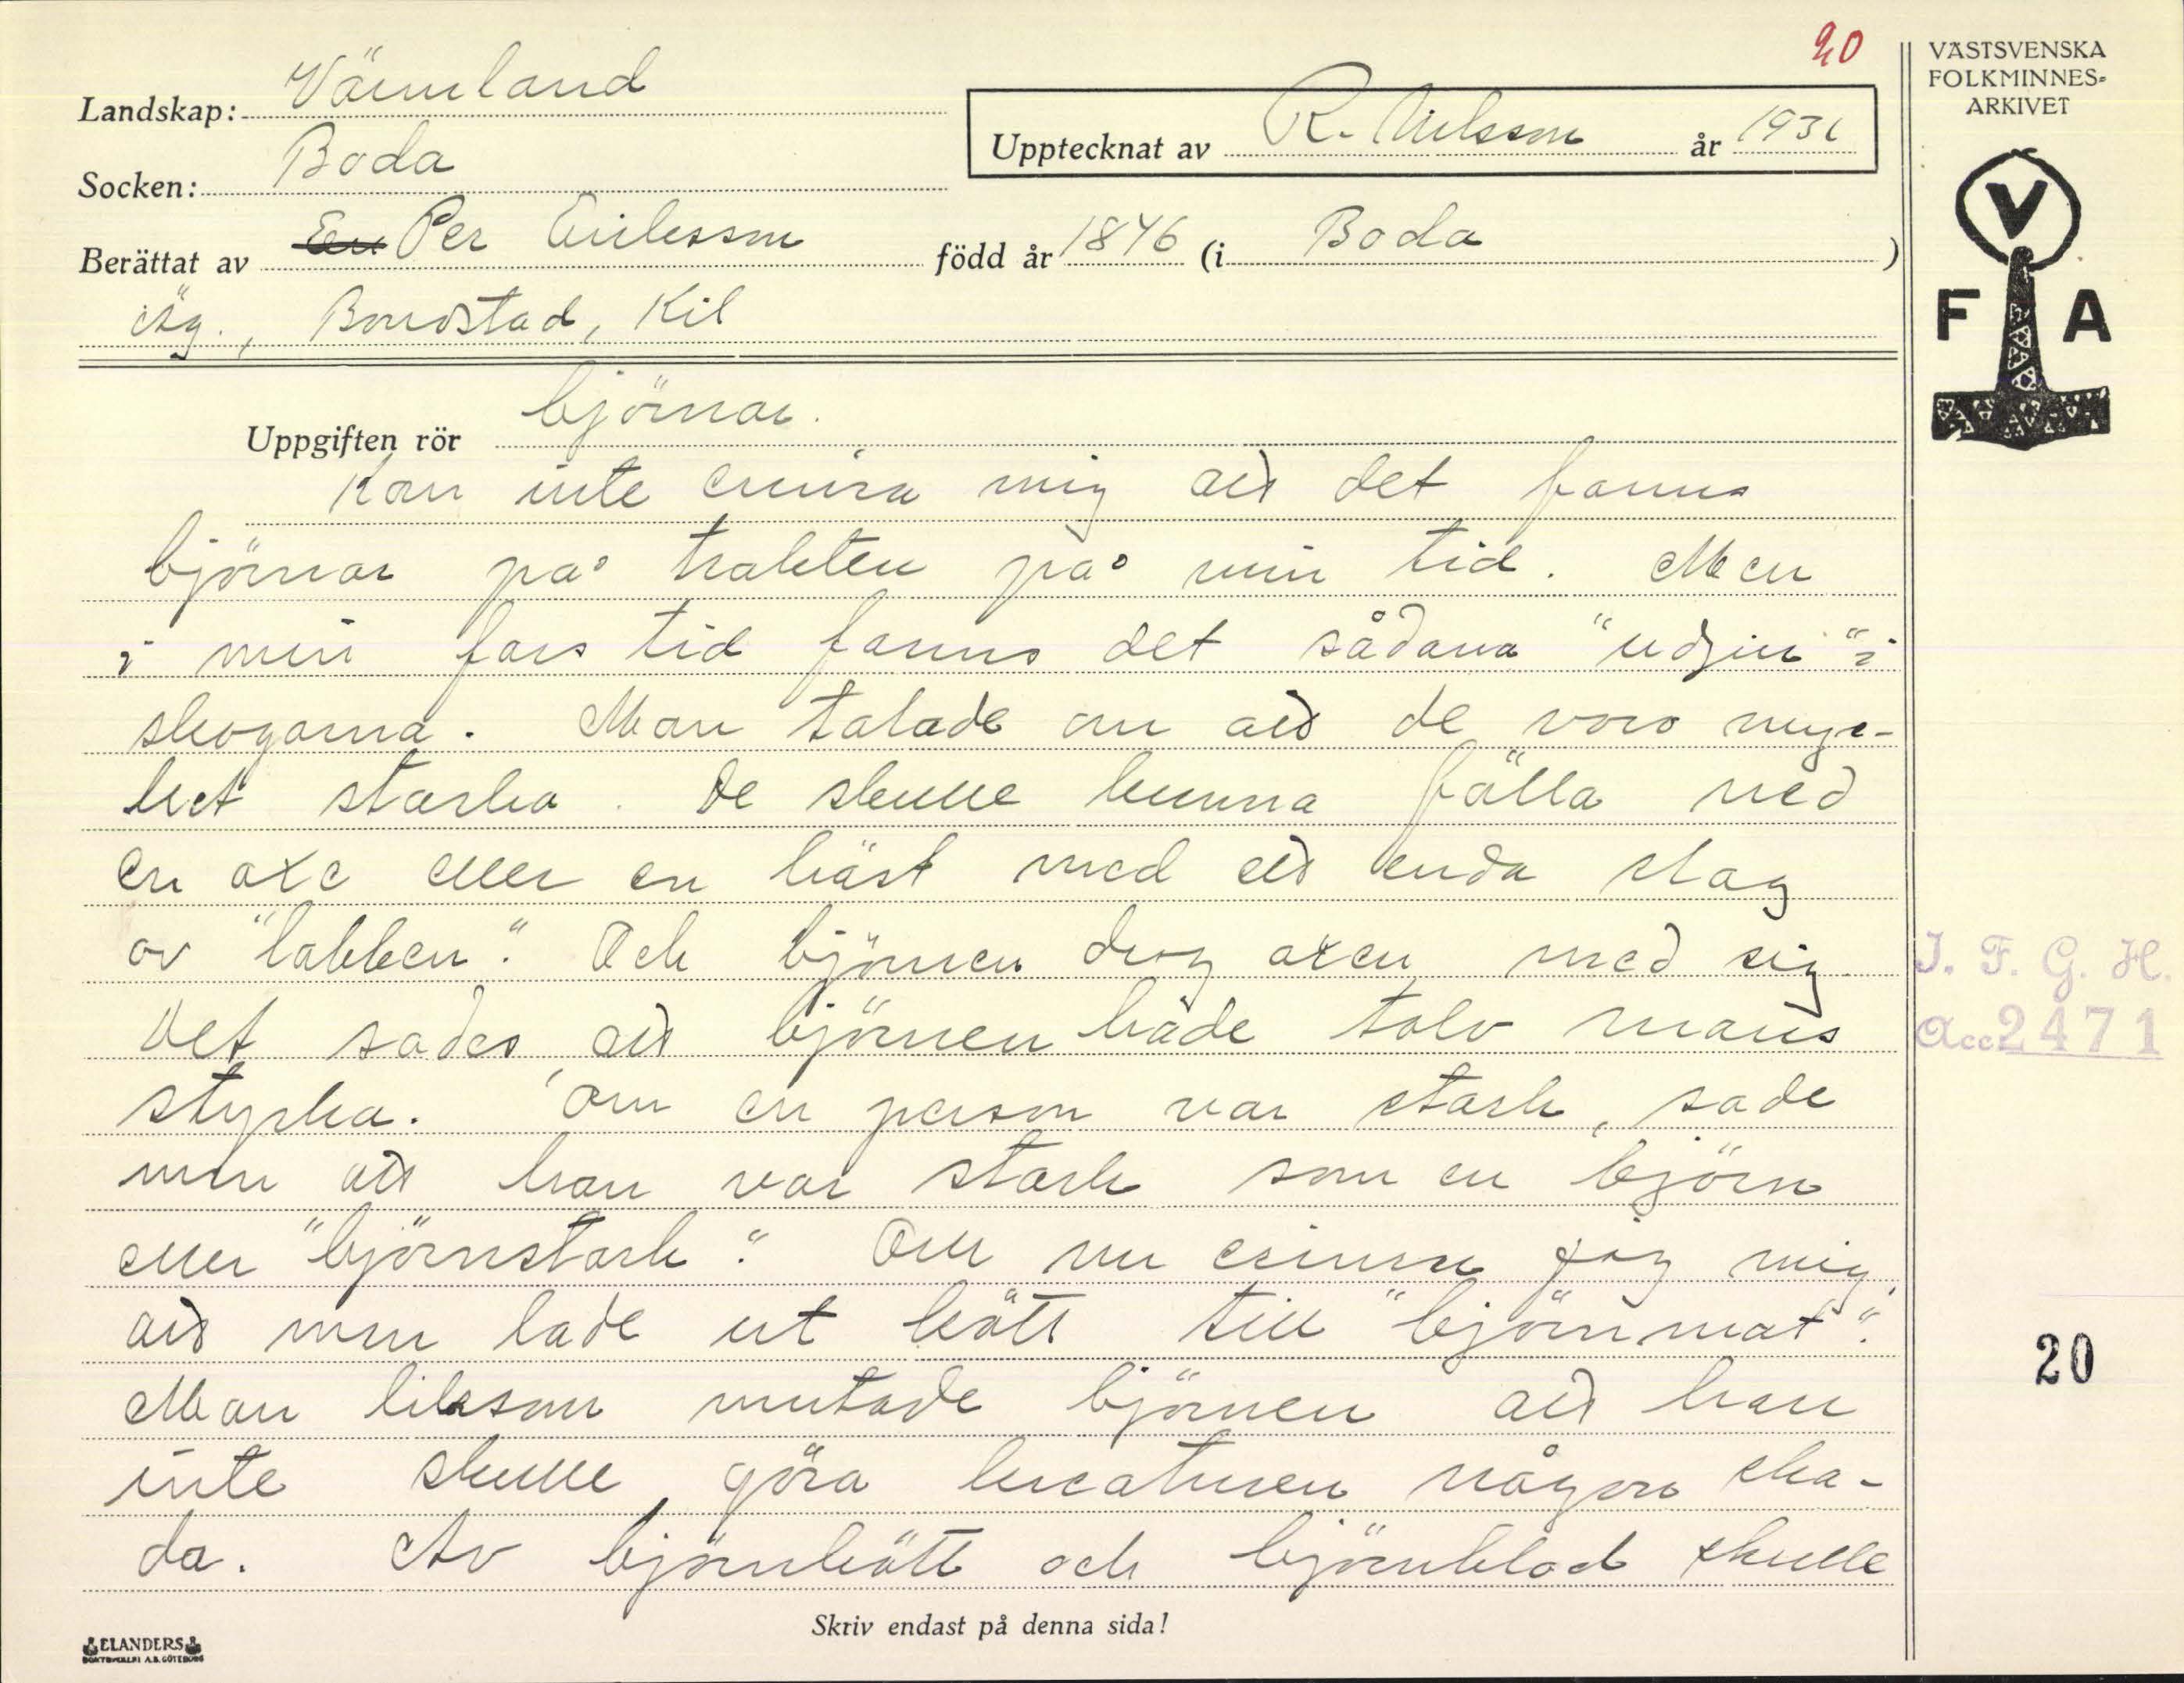 20
VÄSTSVENSKA
FOLKMINNES-
ARKIVET
Landskap: Värmland
Upptecknat av R. Nilsson år 1931
Socken: Boda
Berättat av Per Eriksson född år 1846 (i Boda )
Äg., Bondstad, Kil
V
F A
Uppgiften rör björnar.
Kan inte erinra mig att det fanns
björnar på trakten på min tid. Men
i min fars tid fanns det sådana "udjur" i
skogarna. Man talade om att de voro myc-
ket starka. De skulle kunna fälla ned
en oxe eller en häst med ett enda slag
av "labben". Och björnen drog oxen med sig
Det sades att björnen hade tolv mans
styrka. Om en person var stark, sade
mn att han var stark som en björn
eller "björnstark". Om nu erinra jag mig,
att mn lade ut kött till "björnmat".
Man liksom mutade björnen att han
inte skulle göra kreaturen någon ska-
da. Av björnkött och björnblod skulle
J. F. G. H.
Acc 2471
20
Skriv endast på denna sida!
ELANDERS
BOKTRYCKERI A.B. GÖTEBORG